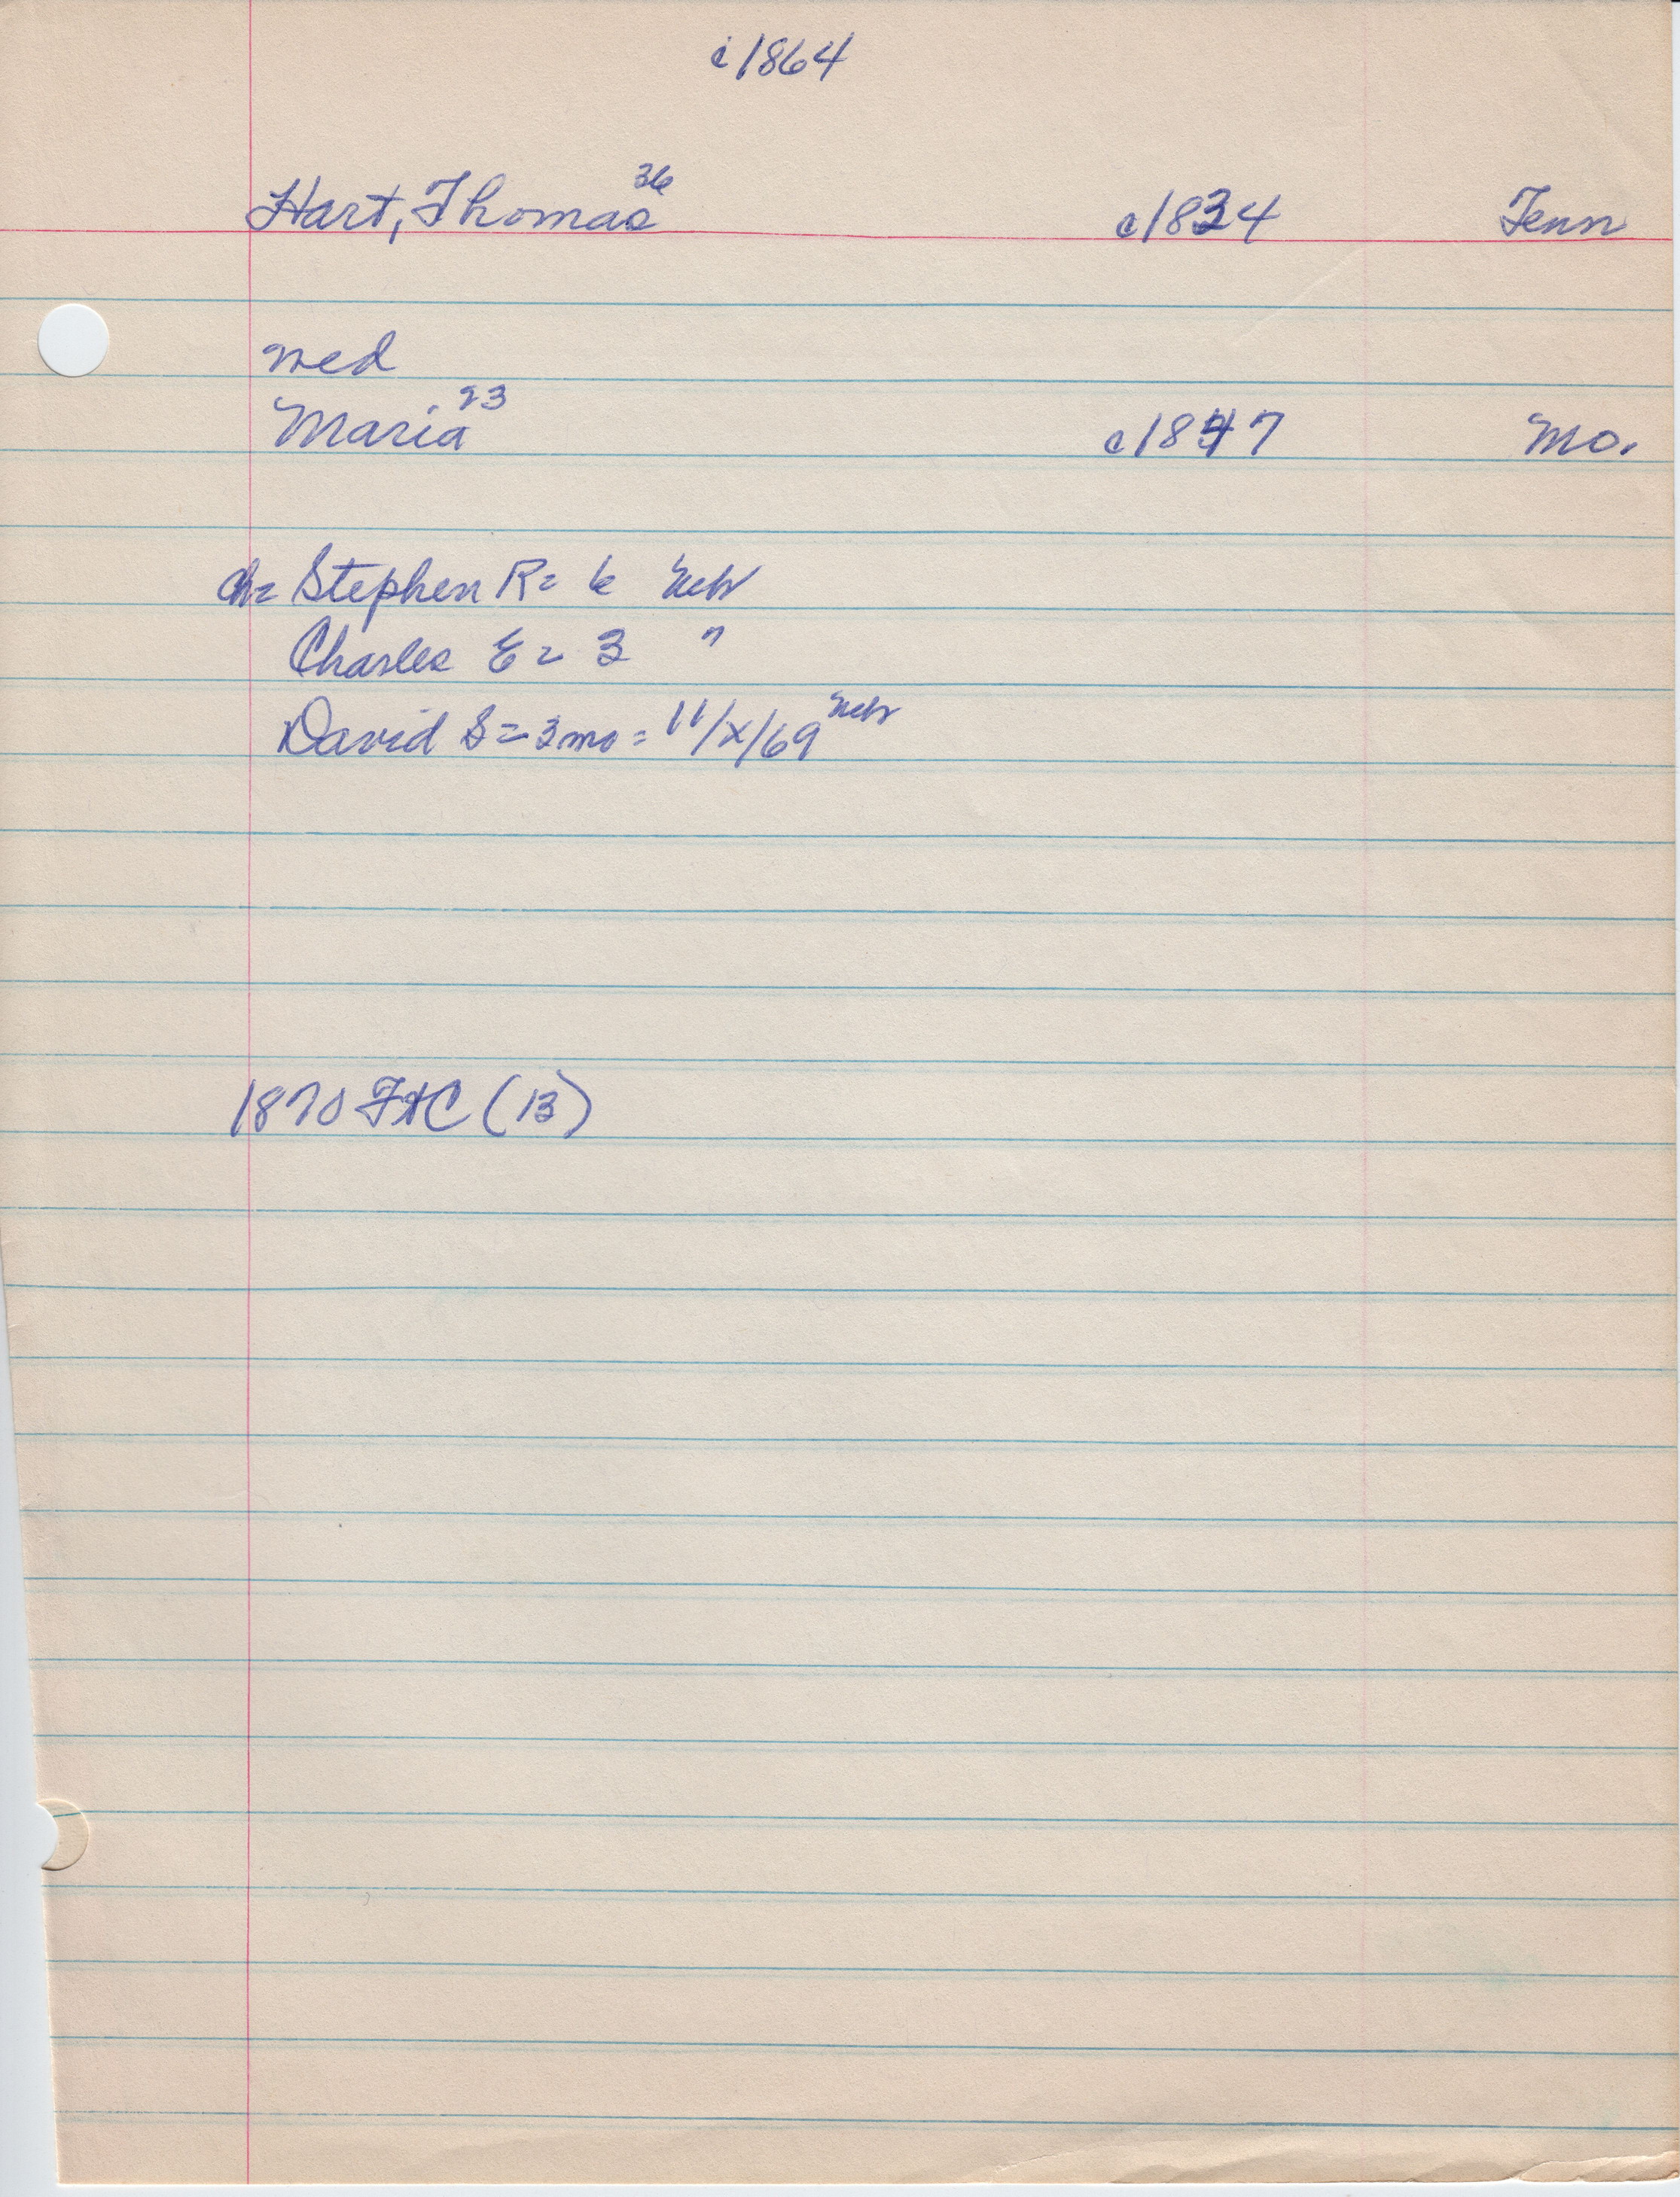 c1864
Hart, Thomas 36 c1834 Tenn
wed
Maria 23 c1847 Mo.
ch= Stephen R= 6 Neb
Charles E= 3 "
David S= 3mo = 11/x/69 Neb
1870 (13)